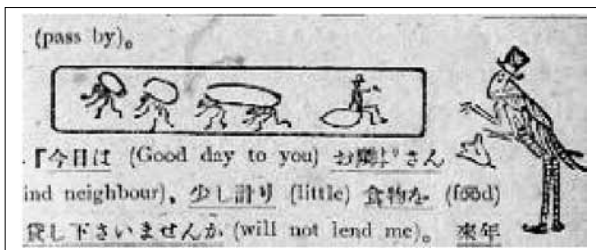 (pass by)。
『今日は (Good day to you) お隣さん
ind neighbour)、少し計り (little) 食物を (food)
貸し下さいませんか (will not lend me)。 來年